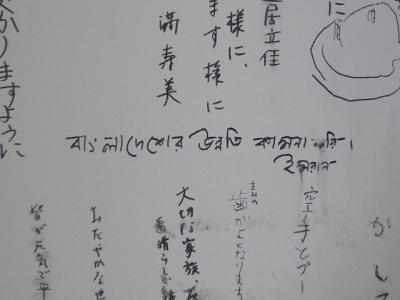 に
居立佳
様に、
ます様に
満寿美
かりますように
বাংলাদেশের উন্নতি কামনা করি।
ইমরান
かし
空手とプー
歯がよくなります
大切な家族、
素晴らしい
おだやかな世
皆が元気で平